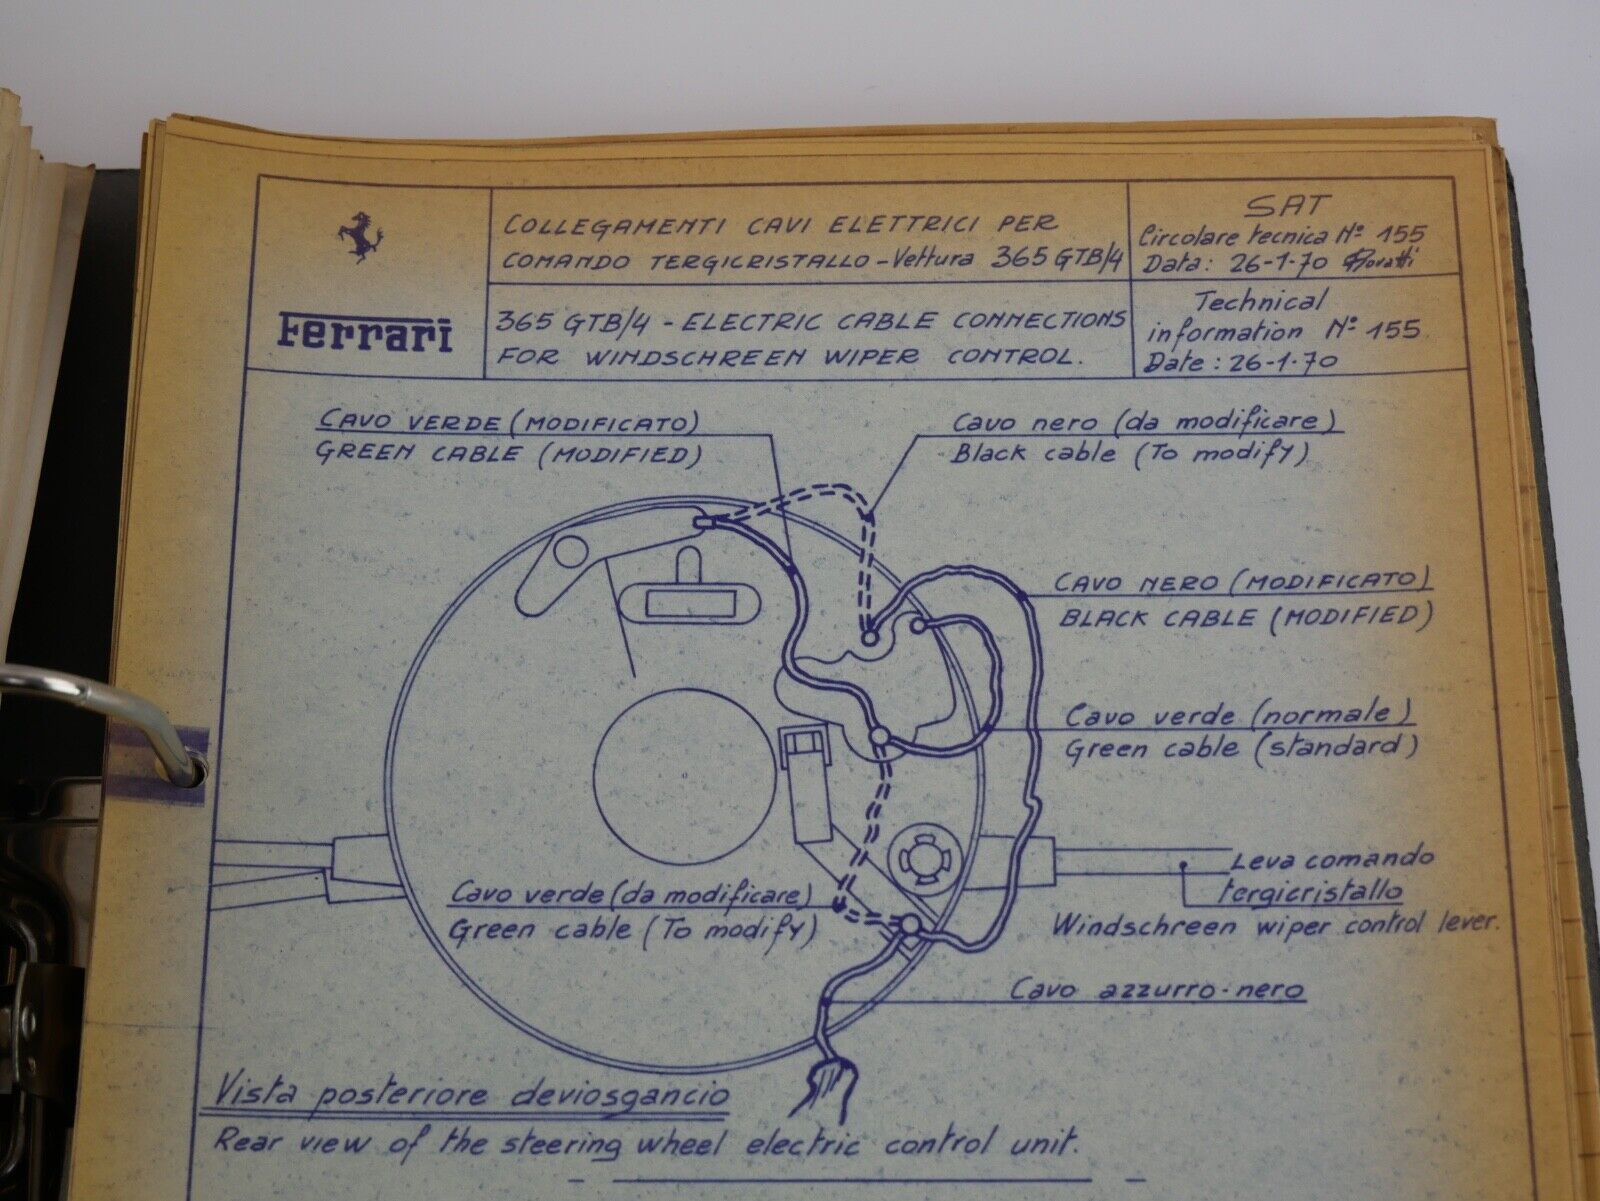 Ferrari
COLLEGAMENTI CAVI ELETTRICI PER
COMANDO TERGICRISTALLO - Vettura 365 GTB/4
365 GTB/4 - ELECTRIC CABLE CONNECTIONS
FOR WINDSCHREEN WIPER CONTROL.
SAT
Circolare tecnica No. 155
Data: 26-1-70
Technical
information No. 155.
Date: 26-1-70
CAVO VERDE (MODIFICATO)
GREEN CABLE (MODIFIED)
Cavo nero (da modificare)
Black cable (To modify)
CAVO NERO (MODIFICATO)
BLACK CABLE (MODIFIED)
Cavo verde (normale)
Green cable (standard)
Leva comando
tergicristallo
Windschreen wiper control lever.
Cavo verde (da modificare)
Green cable (To modify)
Cavo azzurro-nero
Vista posteriore deviosgancio
Rear view of the steering wheel electric control unit.